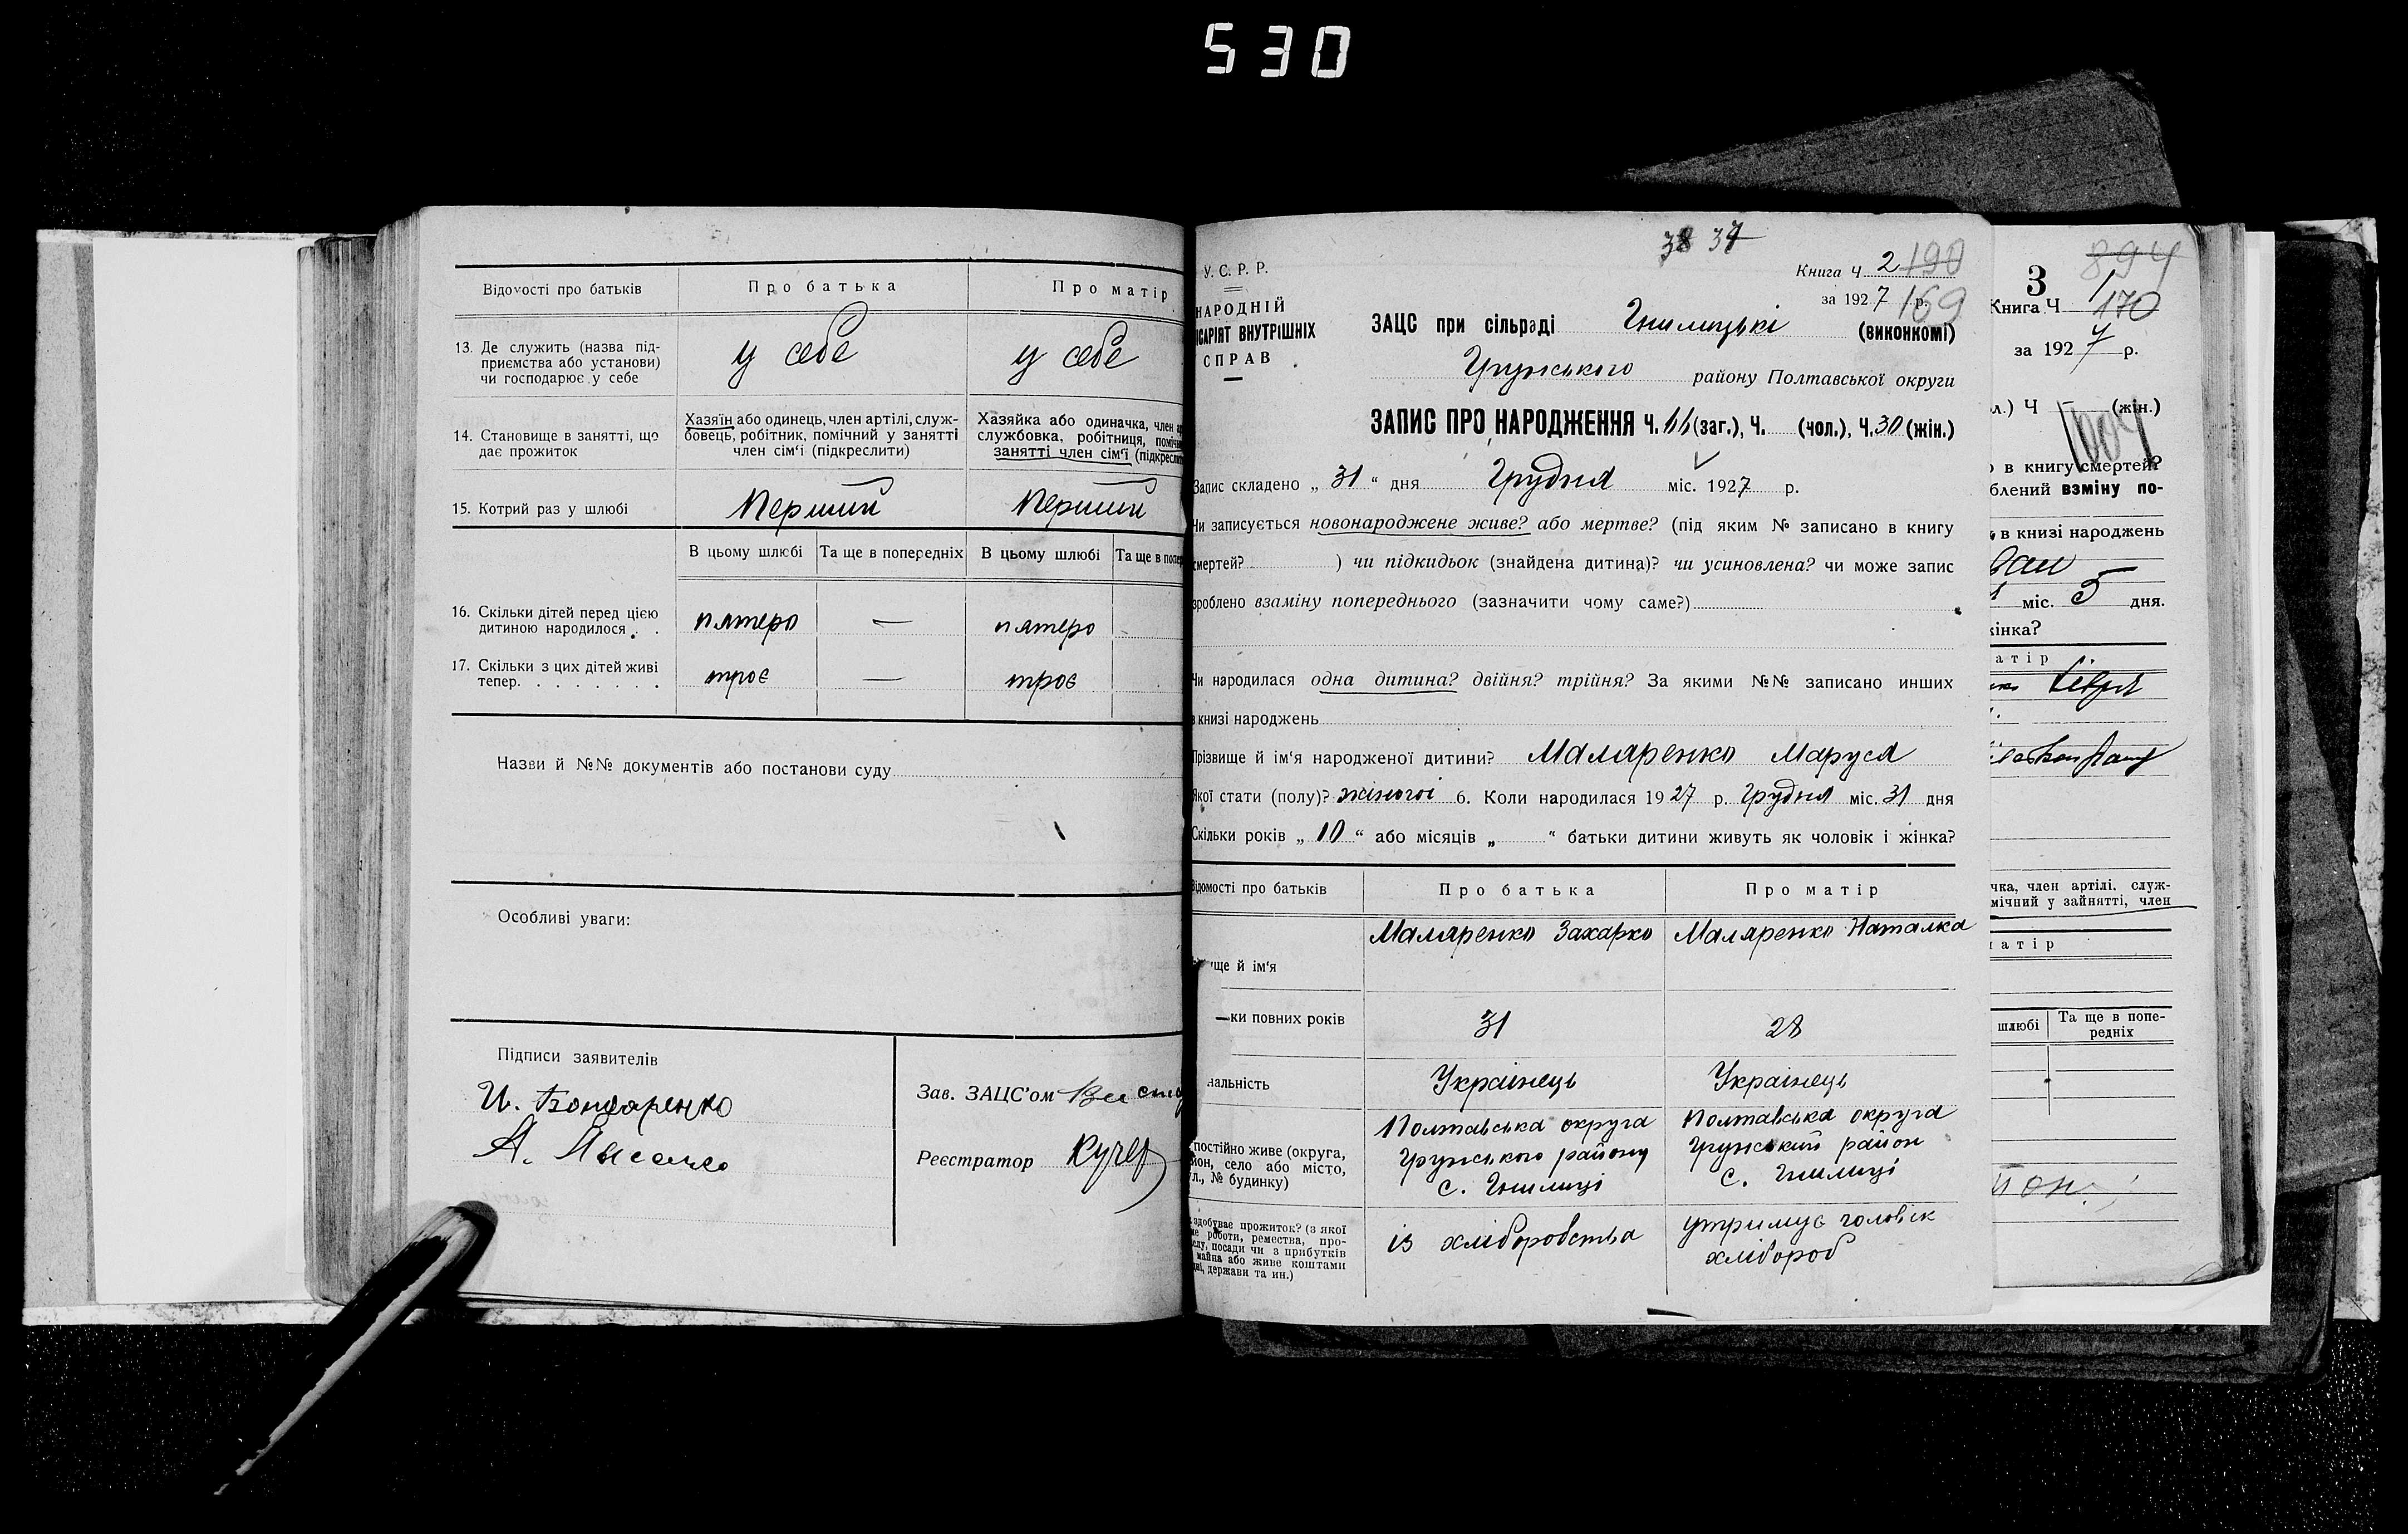 530
Відомості про батьків
Про батька
Про матір
13. Де служить (назва під-
приємства або установи)
чи господарює у себе
у себе
у себе
14. Становище в занятті, що
дає прожиток
Хазяїн або одинець, член артілі, служ-
бовець, робітник, помічний у занятті
член сім'ї (підкреслити)
Хазяйка або одиначка, член
службовка, робітниця,
занятті член сім'ї
15. Котрий раз у шлюбі
Перший
Перший
В цьому шлюбі
Та ще в попередніх
В цьому шлюбі
Та ще в
16. Скільки дітей перед цією
дитиною народилося . .
пятеро
—
пятеро
17. Скільки з цих дітей живі
тепер. . . . . . . .
троє
—
троє
Назви й №№ документів або постанови суду
Особливі уваги:
Підписи заявителів
И. Бондаренко
А. Лысенко
Зав. ЗАЦС'ом
Реєстратор Кучер
38 37
У. С. Р. Р.
НАРОДНІЙ
ВНУТРІШНІХ
СПРАВ
Книга Ч 2 190
за 1927 р. 169
ЗАЦС при сільраді Гнилицькі (виконкомі)
Грунського району Полтавської округи
ЗАПИС ПРО НАРОДЖЕННЯ Ч. 66 (заг.), Ч. (чол.), Ч. 30 (жін.)
Запис складено „ 31 “ дня Грудня міс. 1927 р.
Чи записується новонароджене живе? або мертве? (під яким № записано в книгу
смертей? ) чи підкидьок (знайдена дитина)? чи усиновлена? чи може запис
зроблено взаміну попереднього (зазначити чому саме?)
Чи народилася одна дитина? двійня? трійня? За якими №№ записано инших
в книзі народжень
Прізвище й ім'я народженої дитини? Маляренко Маруся
Якої стати (полу)? жіночої 6. Коли народилася 1927 р. Грудня міс. 31 дня
Скільки років „ 10 “ або місяців „ “ батьки дитини живуть як чоловік і жінка?
Відомості про батьків
Про батька
Про матір
ще й ім'я
Маляренко Захарко
Маляренко Наталка
ки повних років
31
28
нальність
Українець
Українець
постійно живе (округа,
йон, село або місто,
ул., № будинку)
Полтавська округа
Грунського району
с. Гнилиці
Полтавська округа
Грунський район
с. Гнилиці
здобуває прожиток? (з якої
роботи, ремества, про-
слу, посади чи з прибутків
майна або живе коштами
держави та ин.)
із хліборобства
утримує чоловік
хлібороб
3
894
Книга Ч 1 170
за 1927 р.
л.) Ч (жін.)
в книгу смертей?
блений взміну по-
в книзі народжень
міс. 5 дня.
жінка?
атір
чка, член артілі, служ-
мічний у зайнятті, член
атір
шлюбі
Та ще в попе-
редніх